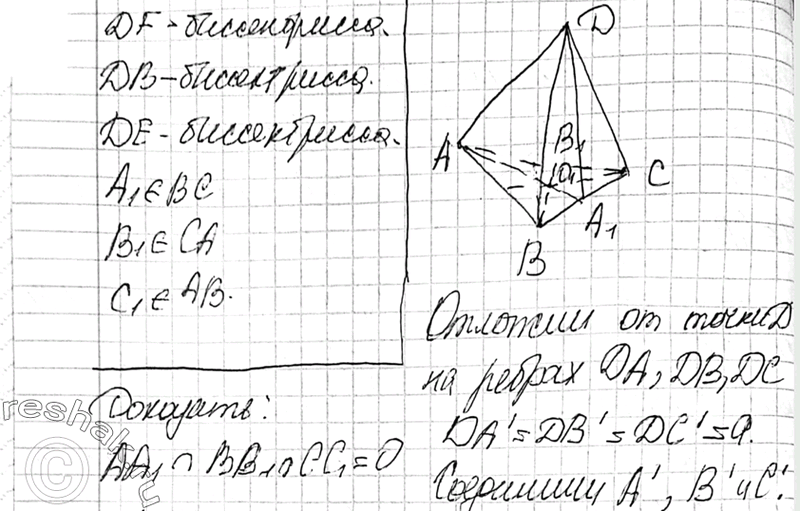 DF - биссектрисса.
DB - биссектрисса.
DE - биссектрисса.
A₁ ∈ BC
B₁ ∈ CA
C₁ ∈ AB.
Доказать:
AA₁ ∩ BB₁ ∩ CC₁ = O
D
A
B₁
O₁
C
A₁
B
Отложим от точки D
на ребрах DA, DB, DC
DA' = DB' = DC' = a.
Соединим A', B' и C'.
reshak.ru
©